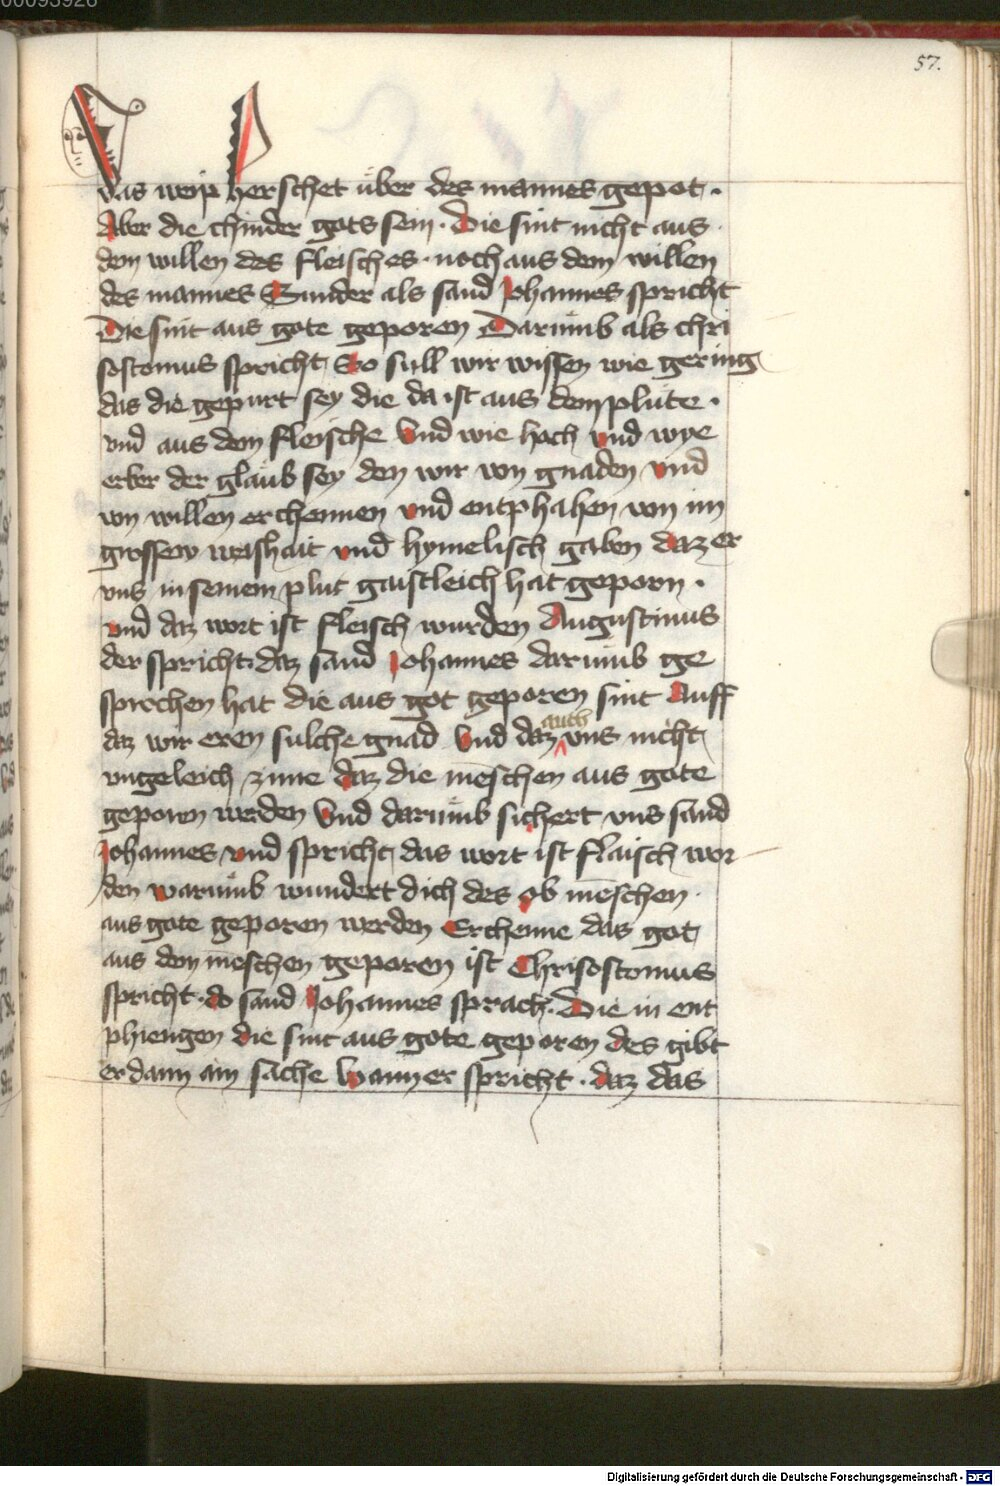 57.
das weip herschet über des mannes gepot .
Aber die chinder gots sein . Die sint nicht aus .
dem willen des fleisches . noch aus dem willen
des mannes Sunder als sand Johannes spricht
Die sint aus gote geporen Darumb als chri
sostomus spricht So sull wir wissen wie gering
das die gepurt sey die da ist aus dem plute .
vnd aus dem fleische Vnd wie hoch vnd wye
erber der glaub sey den wir von gnaden vnd
von willen erchennen vnd entphahen von im
grossew weishait vnd hymelisch gaben daz er
vns in seinem plut gaistleich hat geporn .
vnd daz wort ist fleisch wurden Augustinus
der spricht . daz sand Johannes darumb ge
sprochen hat die aus got geporen sint Auff
daz wir eren sulche gnad Vnd daz auch vns nicht
vngeleich zime daz die meschen aus gote
geporen werden Vnd darumb sichert vns sand
Johannes vnd spricht das wort ist flaisch wor
den warumb wundert dich des ob meschen .
aus gote geporen werden Erchenne das got
aus dem meschen geporen ist Chrisostomus
spricht . do sand Johannes sprach . Die in ent
phiengen die sint aus gote geporen des gibt
er dann ain sache Wann er spricht . daz das
Digitalisierung gefördert durch die Deutsche Forschungsgemeinschaft - DFG